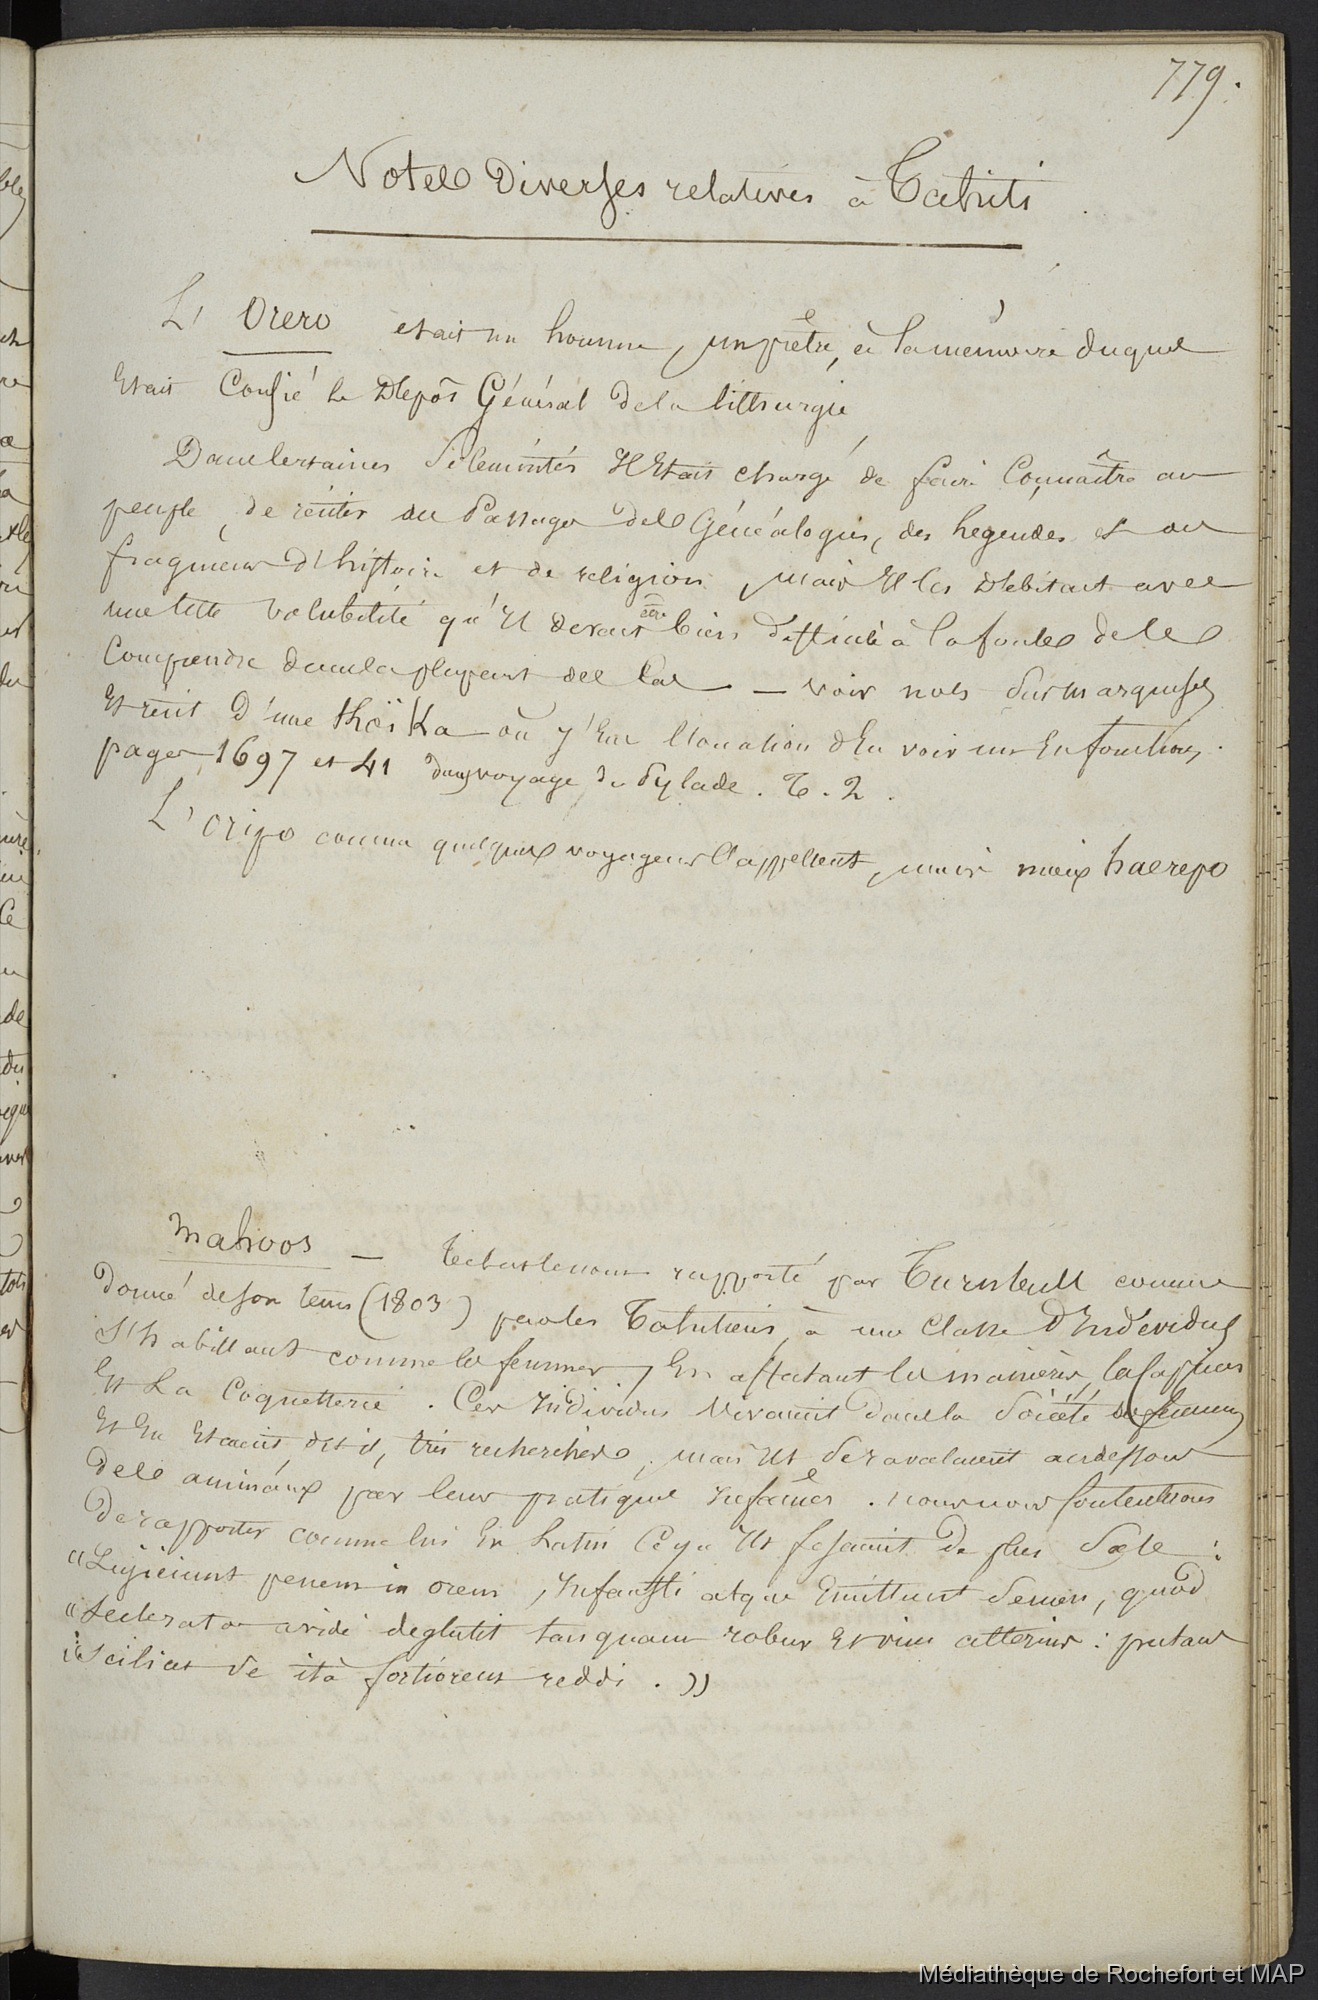 779.
Notes Diverses relatives à Tahiti
L' Orero etait un homme, un prêtre, à la mémoire duquel
Etait Confié le Dépôt Général de la litthurgie
Dans certaines solemnités Il Etait chargé de faire Connaître au
peuple, de réciter des Passages des Généalogies, des legendes et des
fragmens d'histoire et de religion, mais Il les Débitait avec
une telle volubilité qu'Il devait être bien difficile à la foule de les
Comprendre dans la plupart des Cas — voir nots sur Marquises
Et récit D'une thoïka où j'Eus l'Occation d'En voir un En fonctions.
pages 1697 et 41 Du voyage du Pylade. T. 2.
L'oripo comme quelques voyageurs l'appellent, mais mieux haerepo
Mahoos — tel est le nom rapporté par Turnbull comme
Donné de son tems (1803) par les Tahitiens, à une Classe D'Individus
S'habillant comme les femmes, En affectant les manières, les façons
Et La Coquetterie. Ces Individus Vivaient Dans la Société des femmes
Et En Etaient, dit il, très recherchés, mais Ils se ravalaient audessous
Des animaux par leurs pratiques Infâmes. nous nous Contenterons
De rapporter comme lui En Latin Ce qu'Ils fesaient De plus Sale :
"Injiciunt penem in orem, Infausti atque Emittunt Semen, quod
"Scelerator avide deglutit tanquam robur Et vim alterius : putans
"Scilicet se ità fortiorem reddi. »
Médiathèque de Rochefort et MAP